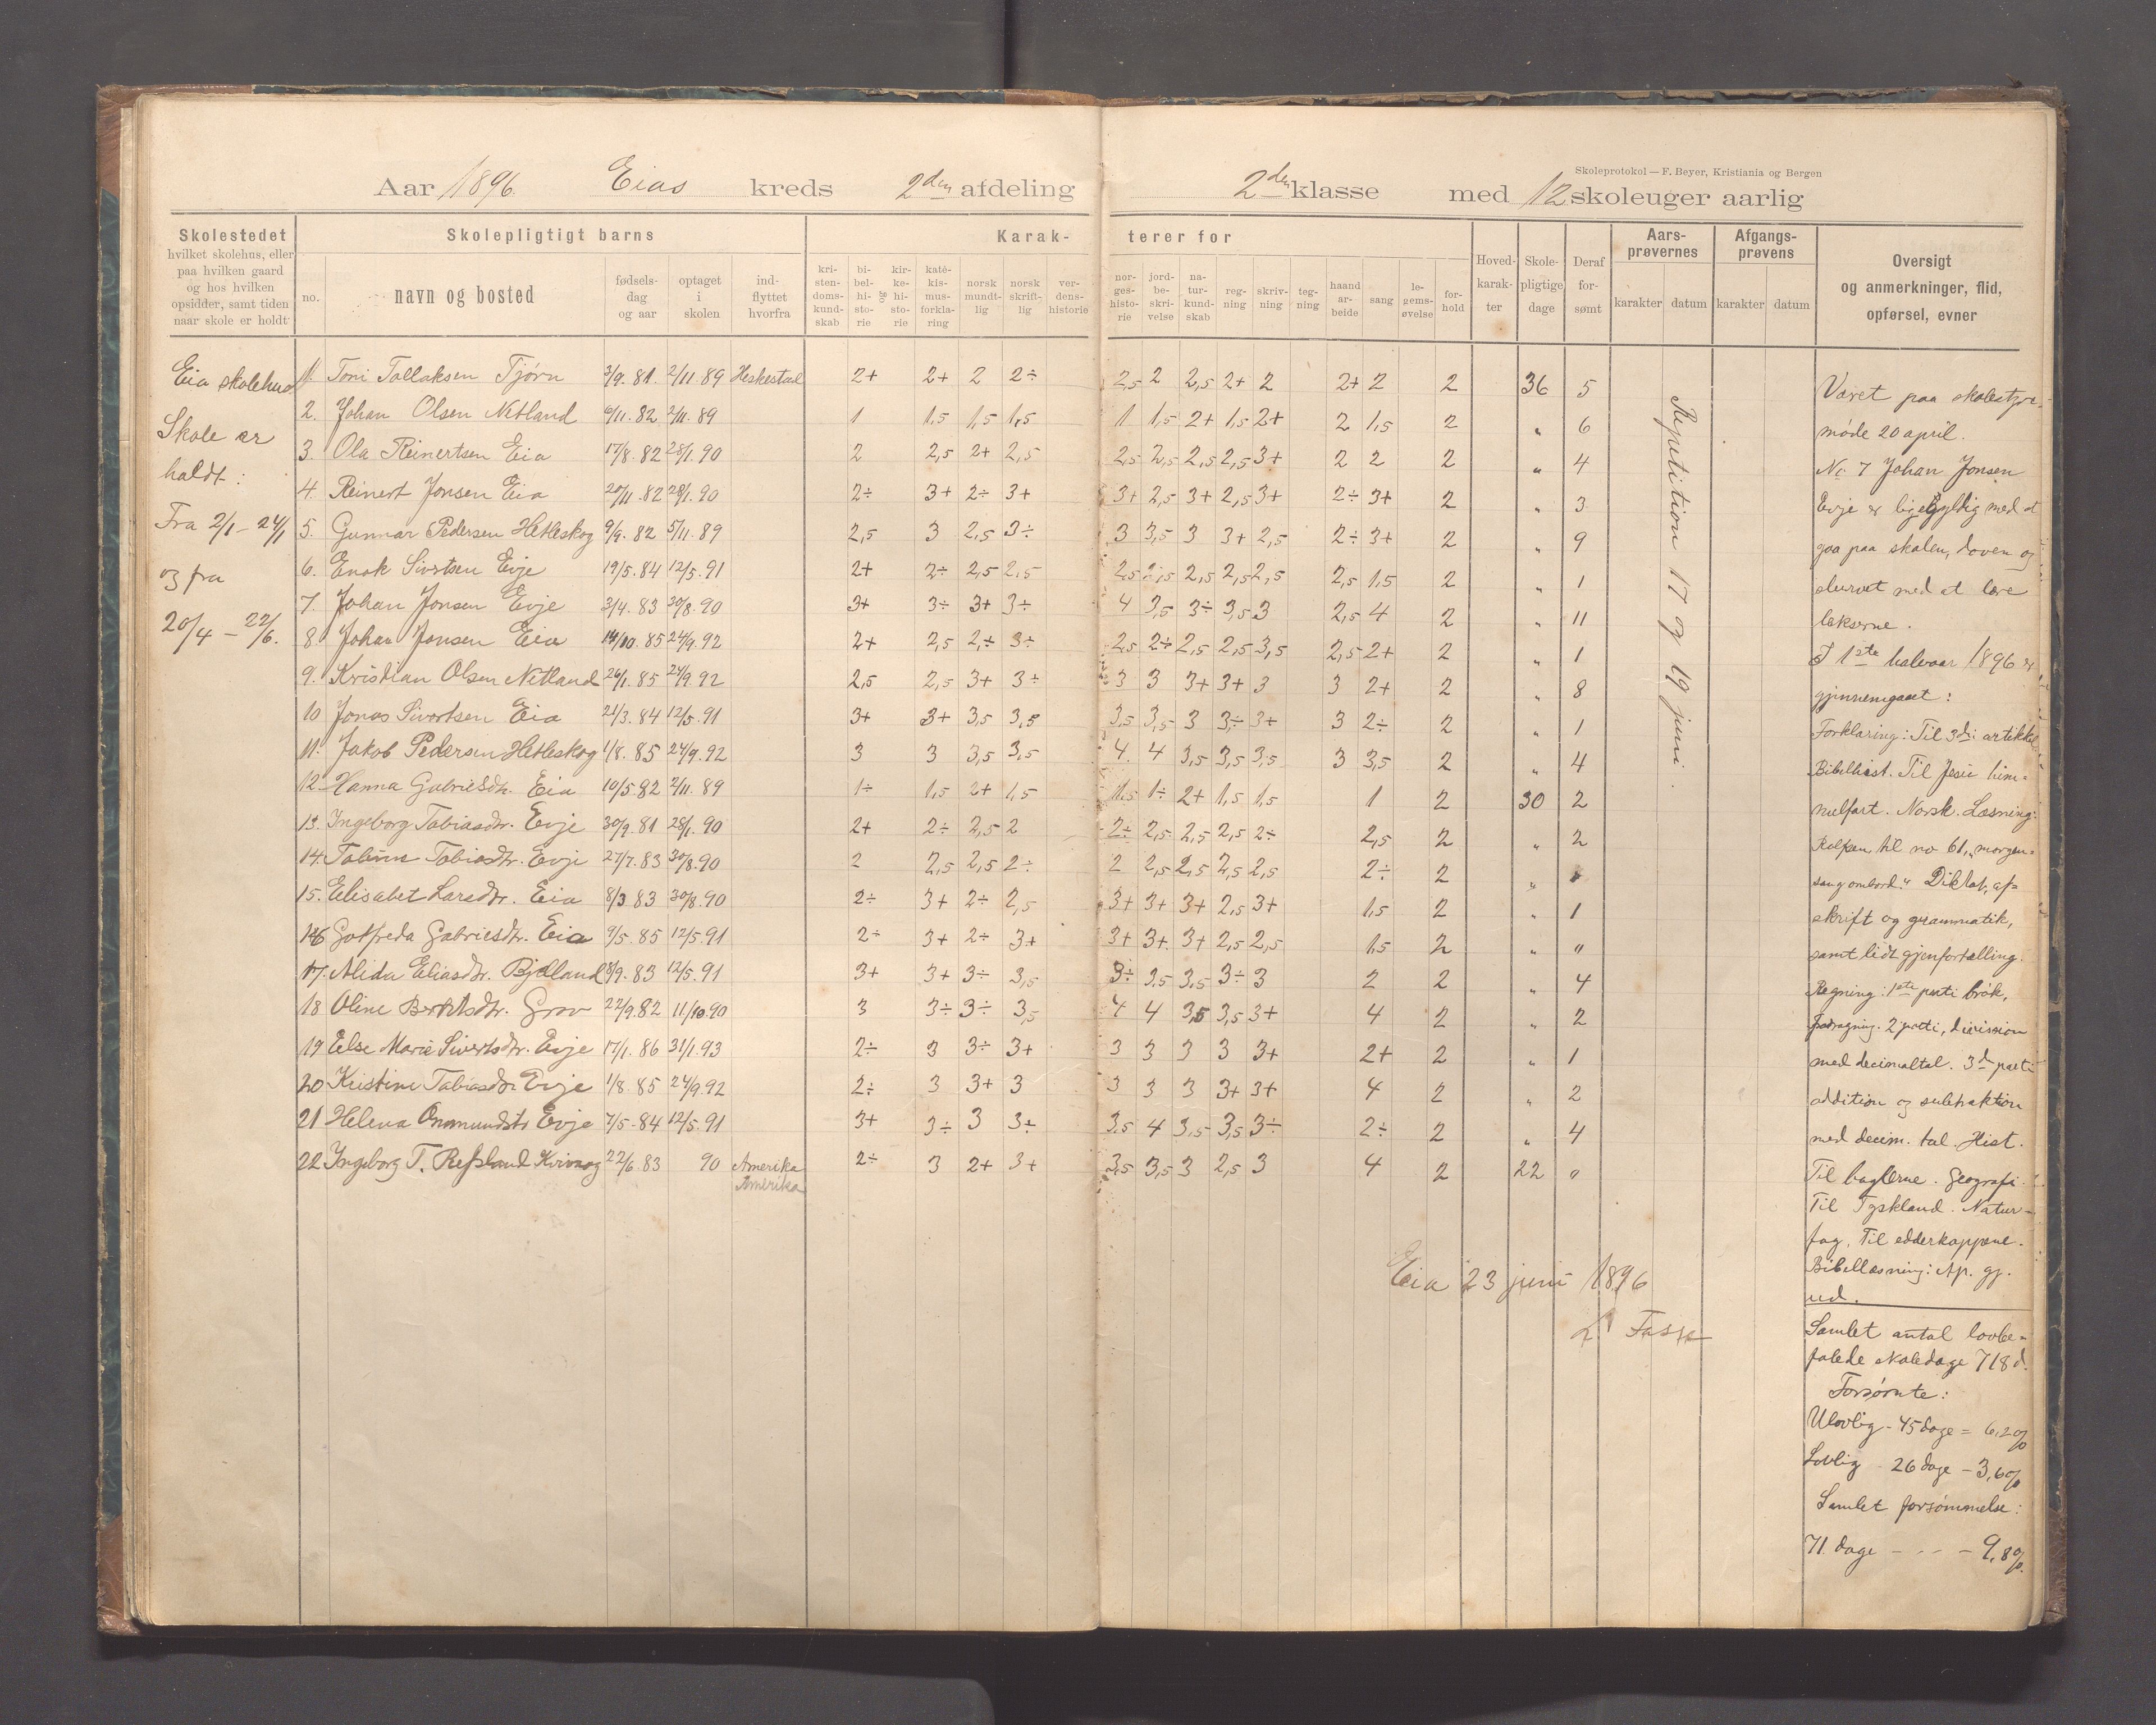 Skoleprotokol — F. Beyer, Kristiania og Bergen
Aar 1896. Eias kreds 2den afdeling 2den klasse med 12 skoleuger aarlig
Skolestedet
hvilket skolehus, eller
paa hvilken gaard
og hos hvilken
opsidder, samt tiden
naar skole er holdt
Skolepligtigt barns
no.
navn og bosted
fødsels-
dag
og aar
optaget
i
skolen
ind-
flyttet
hvorfra
Karak- terer for
kri-
sten-
doms-
kund-
skab
bi-
bel-
hi-
sto-
rie
og
kir-
ke-
hi-
sto-
rie
kate-
kis-
mus-
forkla-
ring
norsk
mundt-
lig
norsk
skrift-
lig
ver-
dens-
historie
nor-
ges-
histo-
rie
jord-
be-
skri-
velse
na-
tur-
kund-
skab
reg-
ning
skriv-
ning
teg-
ning
haand
ar-
beide
sang
le-
gems-
øvelse
for-
hold
Hoved-
karak-
ter
Skole-
pligtige
dage
Deraf
for-
sømt
Aars-
prøvernes
karakter datum
Afgangs-
prøvens
karakter datum
Oversigt
og anmerkninger, flid,
opførsel, evner
Eia skolehus
Skole er
holdt:
Fra 2/1 - 24/1
og fra
20/4 - 22/6.
1. Toni Tollaksen Tjørn 3/9. 81. 2/11 89 Heskestad 2+ 2+ 2 2÷ 2,5 2 2,5 2+ 2 2+ 2 2 36 5
2. Johan Olsen Netland 6/11. 82 2/11. 89 1 1,5 1,5 1,5 1 1,5 2+ 1,5 2+ 2 1,5 2 " 6
3. Ola Reinertsen Eia 17/8. 82 28/1. 90 2 2,5 2+ 2,5 2,5 2,5 2,5 2,5 3+ 2 2 2 " 4
4. Reinert Jonsen Eia 20/11. 82 28/1. 90 2÷ 3+ 2÷ 3+ 3+ 2,5 3+ 2,5 3+ 2÷ 3+ 2 " 3
5. Gunnar Pedersen Hetleskog 9/9. 82 5/11. 89 2,5 3 2,5 3÷ 3 3,5 3 3+ 2,5 2÷ 3+ 2 " 9
6. Enok Sivertsen Evje 19/5. 84 12/5. 91 2+ 2÷ 2,5 2,5 2,5 2,5 2,5 2,5 2,5 2,5 1,5 2 " 1
7. Johan Jonsen Evje 3/4. 83 30/8. 90 3+ 3÷ 3+ 3÷ 4 3,5 3÷ 3,5 3 2,5 4 2 " 11
8. Johan Jonsen Eia 14/10. 85 24/9. 92 2+ 2,5 2÷ 3÷ 2,5 2÷ 2,5 2,5 3,5 2,5 2+ 2 " 1
9. Kristian Olsen Netland 26/1. 85 24/9. 92 2,5 2,5 3+ 3÷ 3 3 3+ 3+ 3 3 2+ 2 " 8
10 Jonas Sivertsen Eia 21/3. 84 12/5. 91 3+ 3+ 3,5 3,5 3,5 3,5 3 3÷ 3+ 3 2÷ 2 " 1
11. Jakob Pedersen Hetleskog 1/8. 85 24/9. 92 3 3 3,5 3,5 4 4 3,5 3,5 3,5 3 3,5 2 " 4
12 Hanna Gabrielsdtr. Eia 10/5. 82 2/11. 89 1÷ 1,5 2+ 1,5 1,5 1÷ 2+ 1,5 1,5 1 2 30 2
13. Ingeborg Tobiasdtr. Evje 30/9. 81 28/1. 90 2+ 2÷ 2,5 2 2÷ 2,5 2,5 2,5 2÷ 2,5 2 " 2
14. Tobine Tobiasdtr. Evje 27/7. 83 30/8. 90 2 2,5 2,5 2÷ 2 2,5 2,5 2,5 2,5 2÷ 2 "
15. Elisabet Larsdtr. Eia 8/3 83 30/8. 90 2÷ 3+ 2÷ 2,5 3+ 3+ 3+ 2,5 3+ 1,5 2 " 1
16 Gotfreda Gabrielsdtr. Eia 9/5. 85 12/5. 91 2÷ 3+ 2÷ 3+ 3+ 3+ 3+ 2,5 2,5 1,5 2 " "
17. Alida Eliasdtr. Bjelland 8/9. 83 12/5. 91 3+ 3+ 3÷ 3,5 3÷ 3,5 3,5 3÷ 3 2 2 " 4
18 Oline Grov 22/9. 82 11/10. 90 3 3÷ 3÷ 3,5 4 4 3,5 3,5 3+ 4 2 " 2
19 Else Marie Sivertsdtr. Evje 17/1. 86 31/1. 93 2÷ 3 3÷ 3+ 3 3 3 3 3+ 2+ 2 " 1
20 Kristine Tobiasdtr. Evje 1/8. 85 24/9. 92 2÷ 3 3+ 3 3 3 3 3+ 3+ 4 2 " 2
21 Helena Evje 7/5 - 84 12/5. 91 3+ 3÷ 3 3÷ 3,5 4 3,5 3,5 3÷ 2÷ 2 " 4
22 Ingeborg T. Refsland 22/6. 83 90 Amerika 2÷ 3 2+ 3+ 3,5 3,5 3 2,5 3 4 2 22 "
Amerika
Repetition 17 og 19 juni.
Været paa skolestyre-
møde 20 april.
No 7 Johan Jonsen
Evje er ligegyldig med at
gaa paa skolen, doven og
slurvet med at lære
lekserne.
I 1ste halvaar 1896 er
gjennemgaaet:
Forklaring: Til 3die artikkel
Bibelhist. Til Jesu him-
melfart. Norsk. Læsning:
til no 61, "morgen-
sang ombord." Diktat, af-
skrift og grammatik,
samt lidt gjenfortælling.
Regning: 1ste parti brøk,
2 parti, division
med decimaltal. 3de parti
addition og subtraktion
med decim. tal. Hist.
Til baglerne. Geografi.
Til Tyskland. Natur-
fag. Til edderkoppene.
Bibellæsning: Ap. gj.
ud.
Samlet antal lovbe-
falede skoledage 718 d.
Forsømte:
Ulovlig - 45 dage = 6,2 %
Lovlig - 26 dage - 3,6 %
Samlet forsømmelse:
71 dage - - - - 9,8 %.
Eia 23 juni 1896